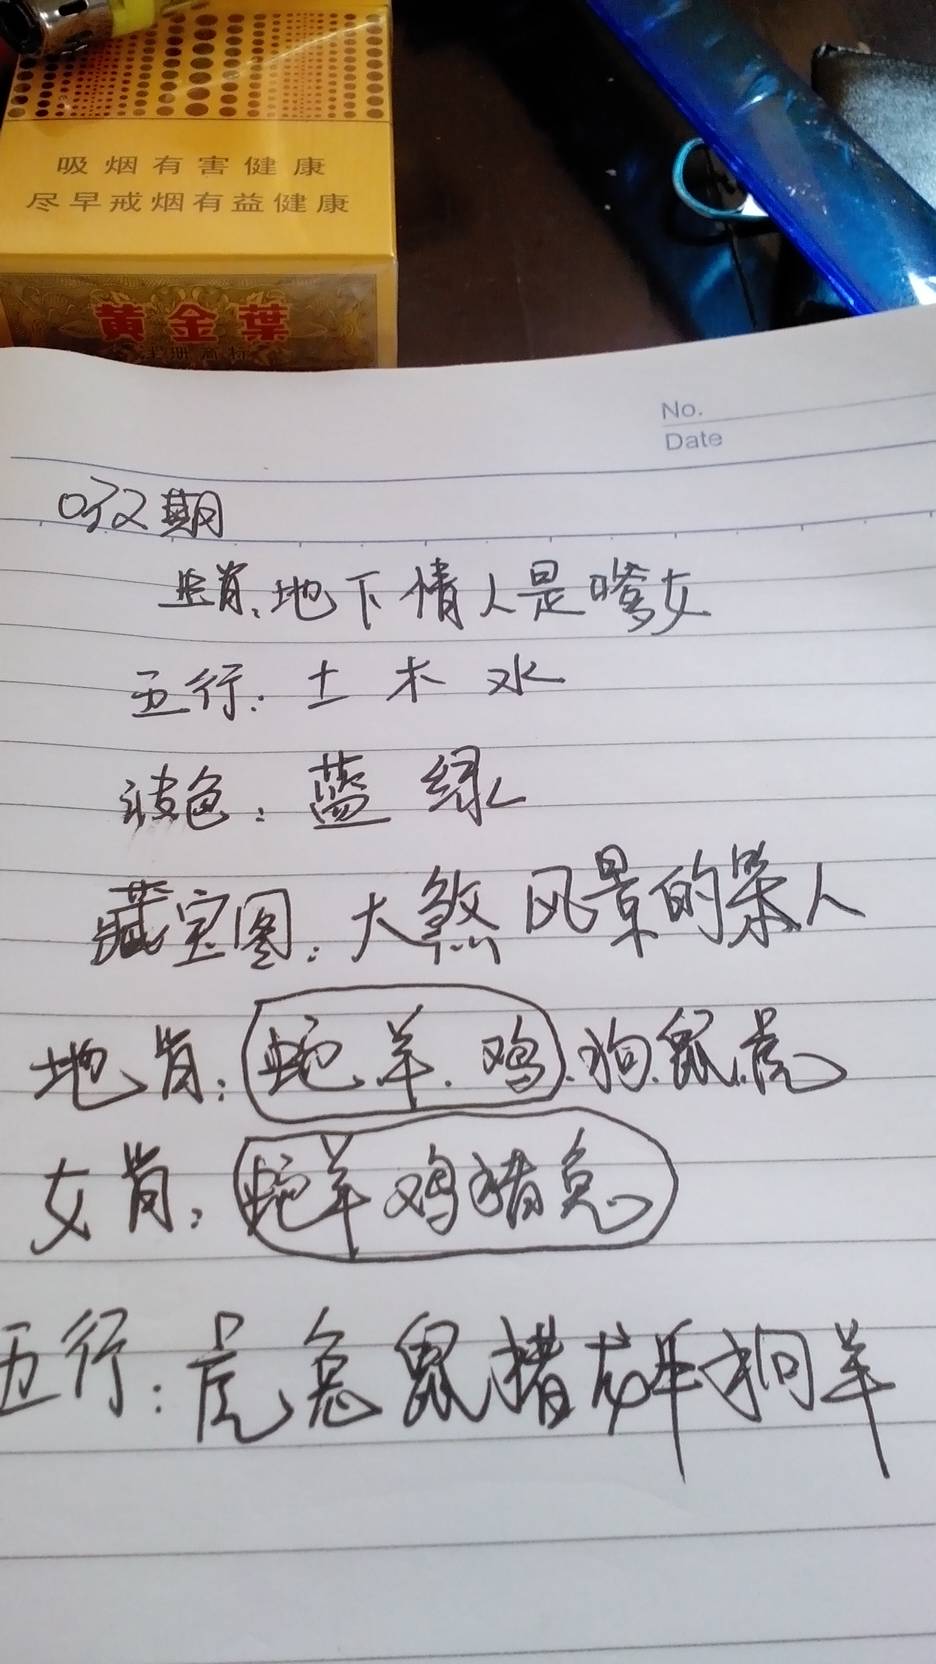 吸烟有害健康
尽早戒烟有益健康
黄金葉
注册商标
No.
Date
期
生肖:地下情人是嗲女
五行:土 木 水
波色:蓝 绿
藏宝图:大煞风景的笨人
地肖:蛇羊.鸡.狗.鼠.虎
女肖:蛇羊鸡猪兔
五行:虎兔鼠猪龙牛狗羊